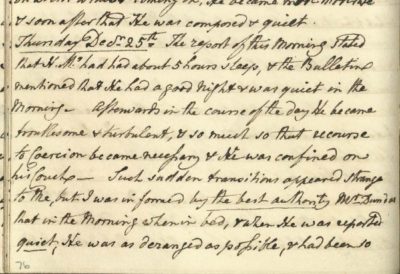 & soon after that He was composed & quiet.
Thursday Decr. 25th. The report of this Morning stated
that H. My. had had about 5 hours sleep, & the Bulletin
mentioned that He had a good Night & was quiet in the
Morning — Afterwards in the course of the day He became
troublesome & turbulent, & so much so that recourse
to Coercion became necessary & He was confined on
his Couch — Such sudden transitions appeared strange
to Me, but I was informed by the best authority Mr. Dundas
that in the Morning when in bed, & when He was reported
quiet, He was as deranged as possible, & had been so
76